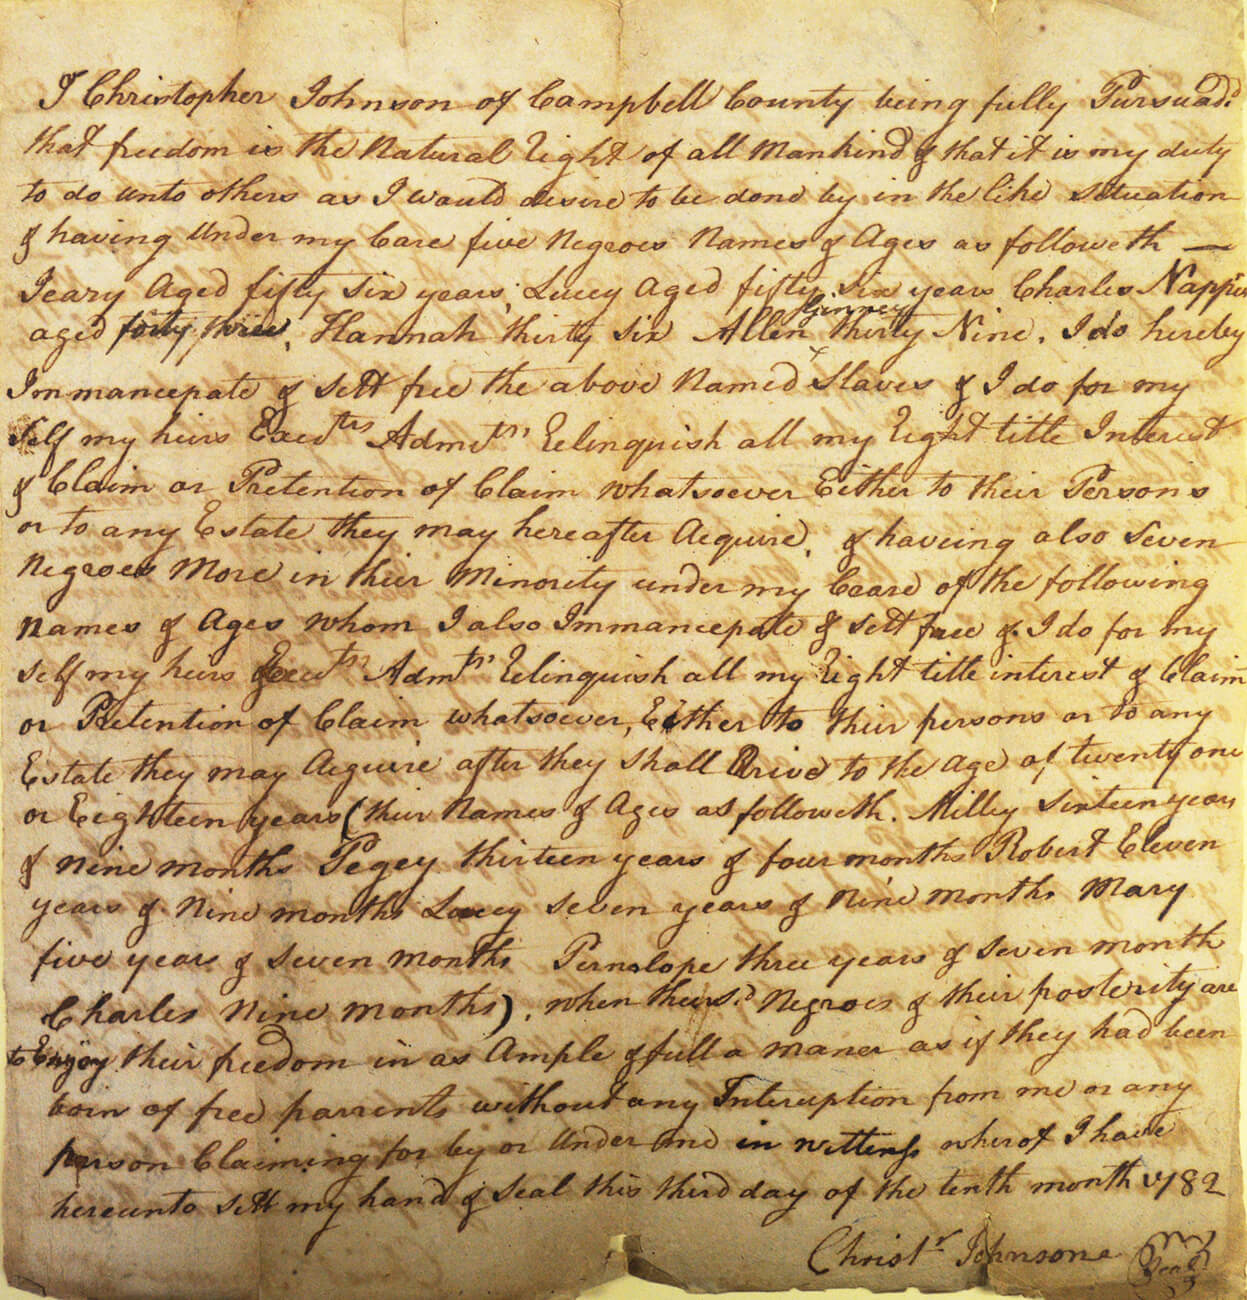 I Christopher Johnson of Campbell County being fully Pursuad.d
that freedom is the Natural Right of all Mankind & that it is my duty
to do unto others as I would desire to be done by in the like Situation
& having Under my Care five Negroes Names & Ages as followeth —
Jeary Aged fifty Six years, Lucey Aged fifty Six years Charles Nappier
Ginney
aged forty three, Hannah thirty Six Allen thirty Nine. I do hereby
Immancepate & sett free the above Named Slaves & I do for my
Self my heirs Exectrs Admitrs Relinquish all my Right title Interest
& Claim or Pretention of Claim whatsoever Either to their Persons
or to any Estate they may hereafter Acquire, & haveing also Seven
Negroes More in their Minority under my Ceare of the following
Names & Ages whom I also Immancepate & sett free & I do for my
self my heirs Exectrs Admtrs Relinquish all my Right title interest & Claim
or Pretention of Claim whatsoever, Either to their persons or to any
Estate they may Acquire after they shall Arive to the Age of twenty one
or Eighteen years (their Names & Ages as followeth. Milley Sixteen years
& nine months Pegey thirteen years & four months Robert Eleven
years & Nine months Lucey Seven years & Nine months Mary
five years & Seven months Pernelope three years & Seven month
Charles Nine months), when the sd Negroes & their posterity are
to Enjoy their freedom in as Ample & full a maner as if they had been
born of free parrents without any Interuption from me or any
person Claiming for by or Under me in wittness wherof I have
hereunto sett my hand & Seal this third day of the tenth month 1782
Christr Johnson
Seal